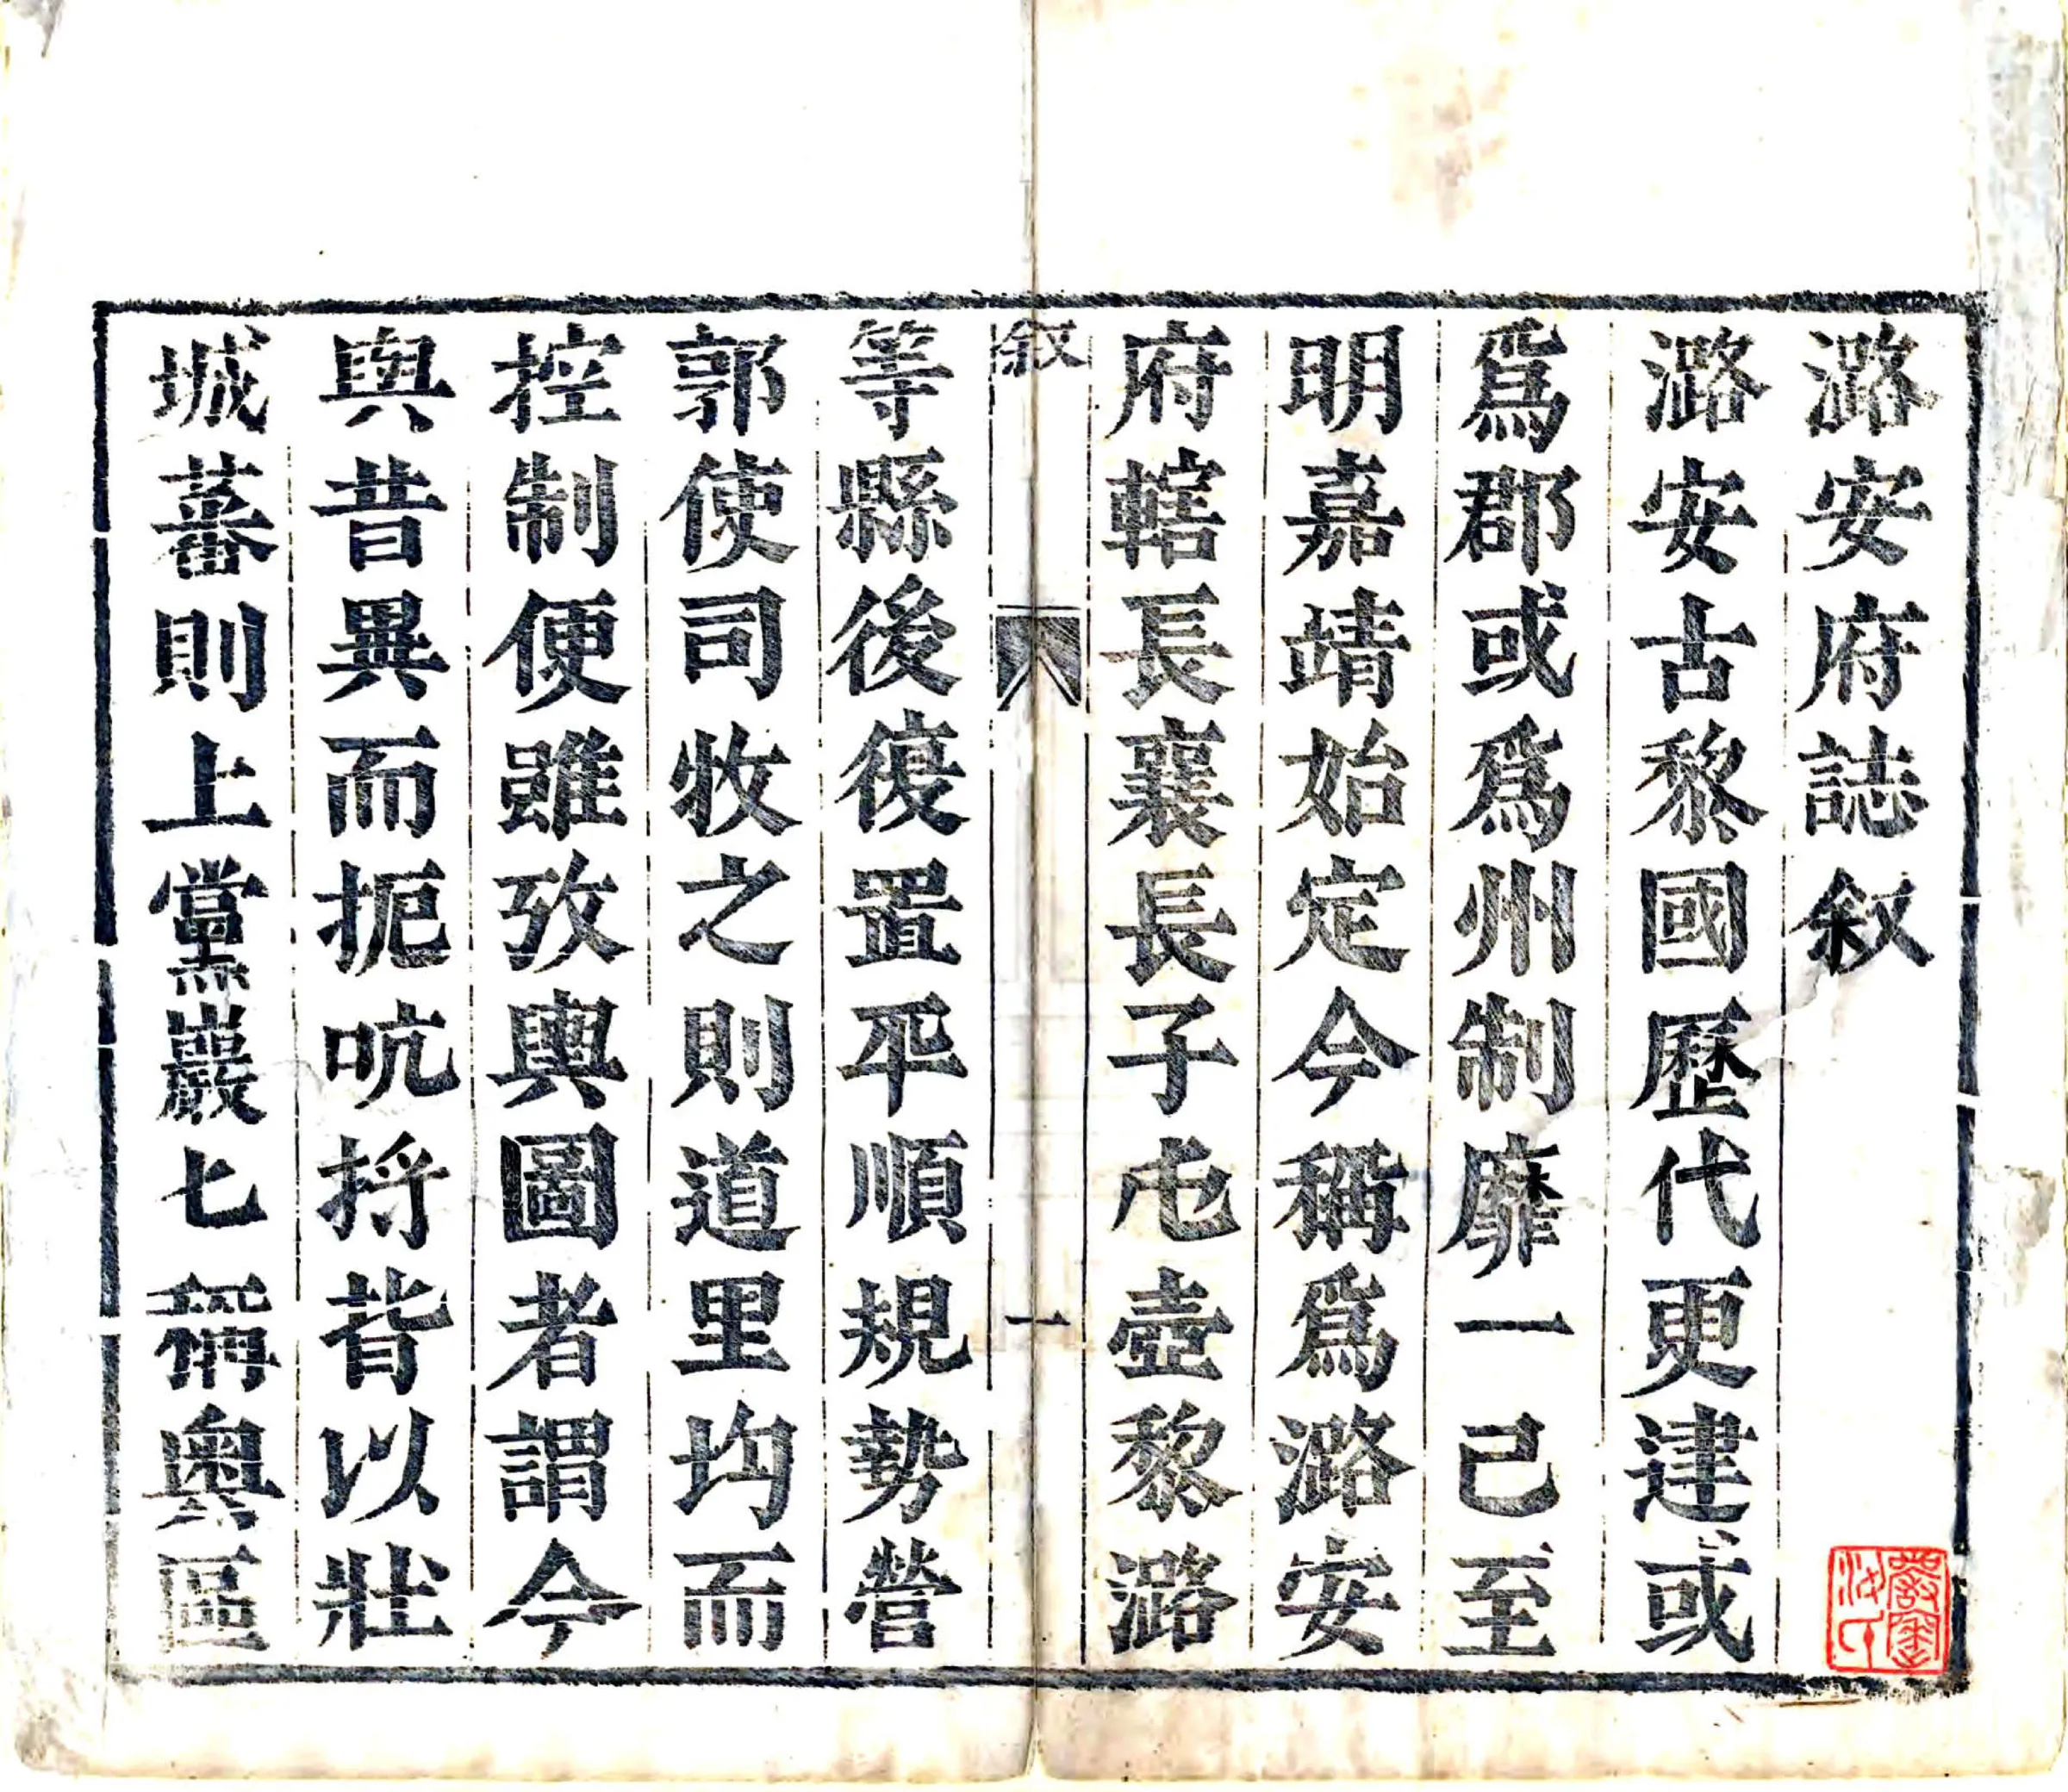 潞安府誌叙
潞安古黎國歷代更建或
爲郡或爲州制靡一己至
明嘉靖始定今稱爲潞安
府轄長襄長子屯壺黎潞
叙
一
等縣後復置平順規勢營
郭使司牧之則道里均而
控制便雖攷輿圖者謂今
與昔異而扼吭捋背以壯
城蕃則上黨巖七稱奧區